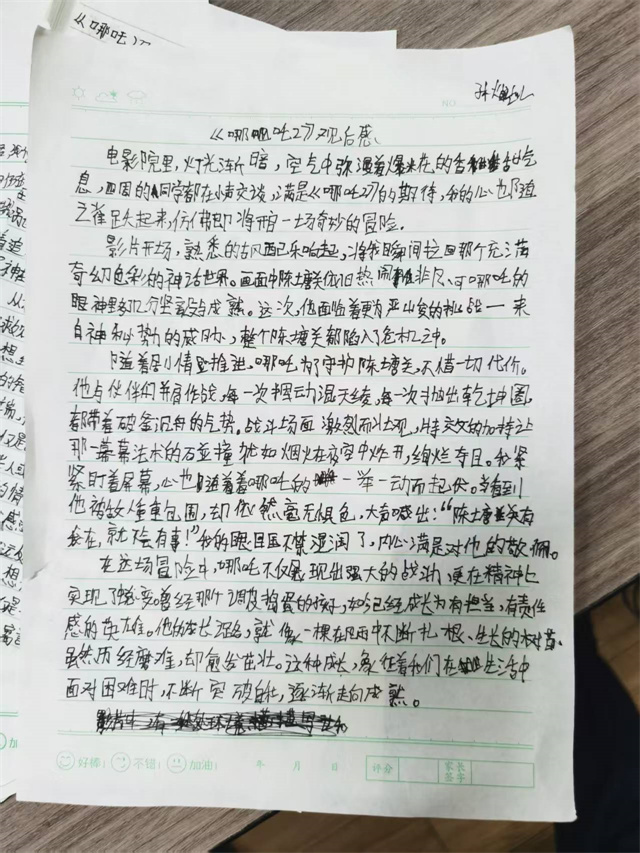 《哪吒
NO.
《哪吒2》观后感
电影院里，灯光渐暗，空气中弥漫着爆米花的香甜气
息，四周的同学都在小声交谈，满是《哪吒2》的期待，我的心也随
之雀跃起来，仿佛即将开启一场奇妙的冒险。
影片开场，熟悉的古风配乐响起，将我瞬间拉回那个充满
奇幻色彩的神话世界。画面中陈塘关依旧热闹非凡，可哪吒的
眼神里多了几分坚毅与成熟。这次，他面临着更为严峻的挑战——来
自神秘势力的威胁，整个陈塘关都陷入了危机之中。
随着剧情推进，哪吒为了守护陈塘关，不惜一切代价。
他与伙伴们并肩作战，每一次挥动混天绫，每一次抛出乾坤圈，
都带着破釜沉舟的气势。战斗场面激烈而壮观，特效的加持让
那一幕幕法术的碰撞犹如烟火在夜空中炸开，绚烂夺目。我紧
紧盯着屏幕，心也随着哪吒的一举一动而起伏。当看到
他被敌人重重包围，却依然毫无惧色，大声喊出：“陈塘关有
我在，就不会有事！”我的眼眶不禁湿润了，内心满是对他的敬佩。
在这场冒险中，哪吒不仅展现出强大的战斗力，更在精神上
实现了蜕变。曾经那个调皮捣蛋的孩子，如今已经成长为有担当，有责任
感的英雄。他的成长历程，就像一棵在风雨中不断扎根、生长的树苗，
虽然历经磨难，却愈发茁壮。这种成长，象征着我们在生活中
面对困难时，不断突破自我，逐渐走向成熟。
好棒！ 不错！ 加油！ 年 月 日 评分 家长签字